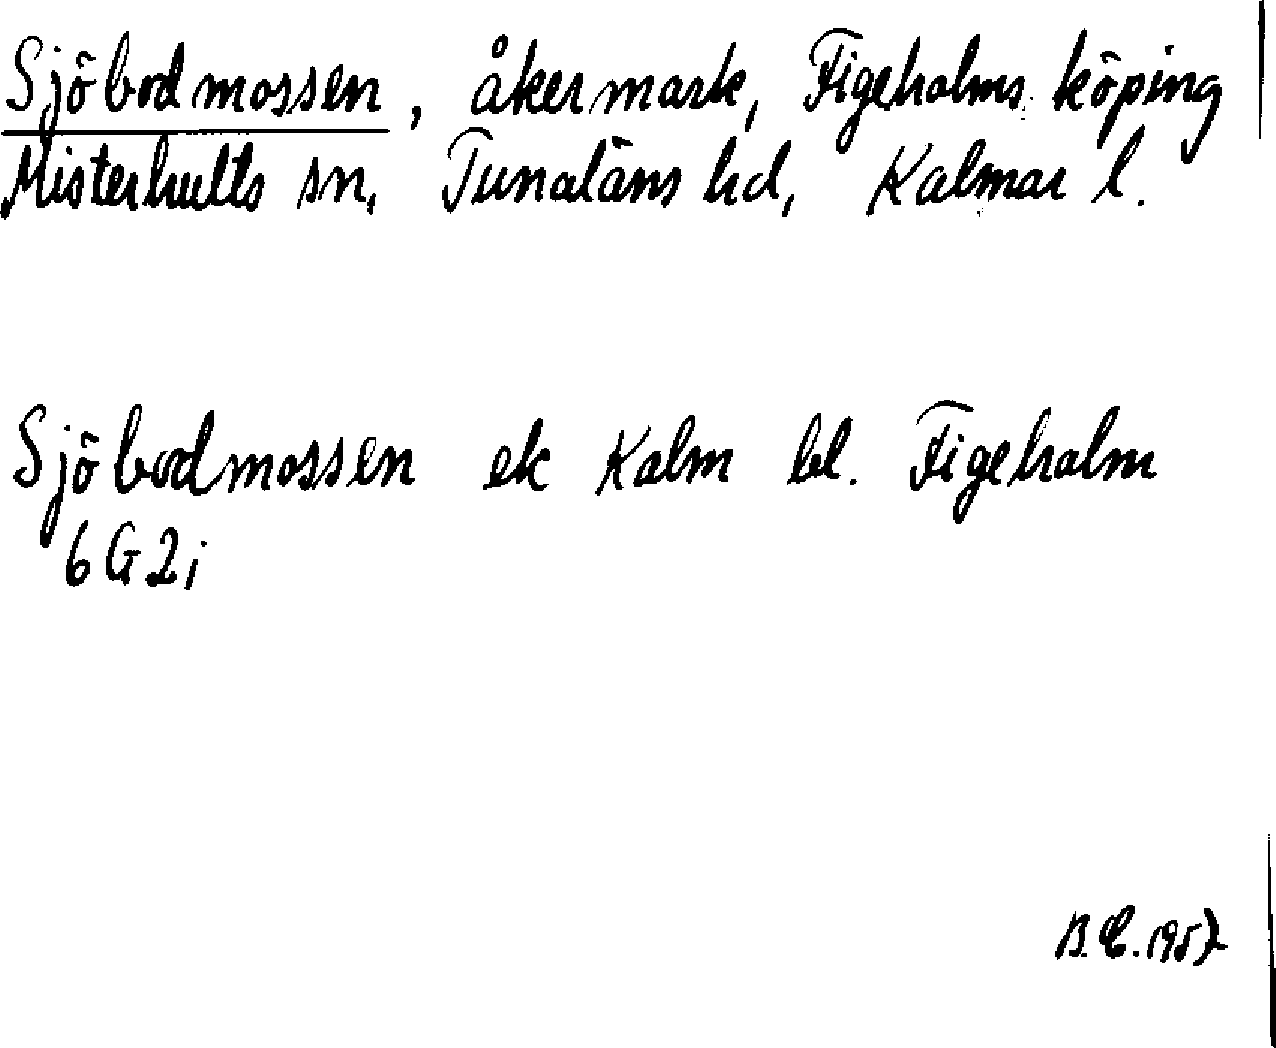 Sjöbodmossen, åkermark, Figeholms köping
Misterhults sn, Tunaläns hd, Kalmar l.
Sjöbodmossen ek Kalm bl. Figeholm
6G2i
B.E. 1957